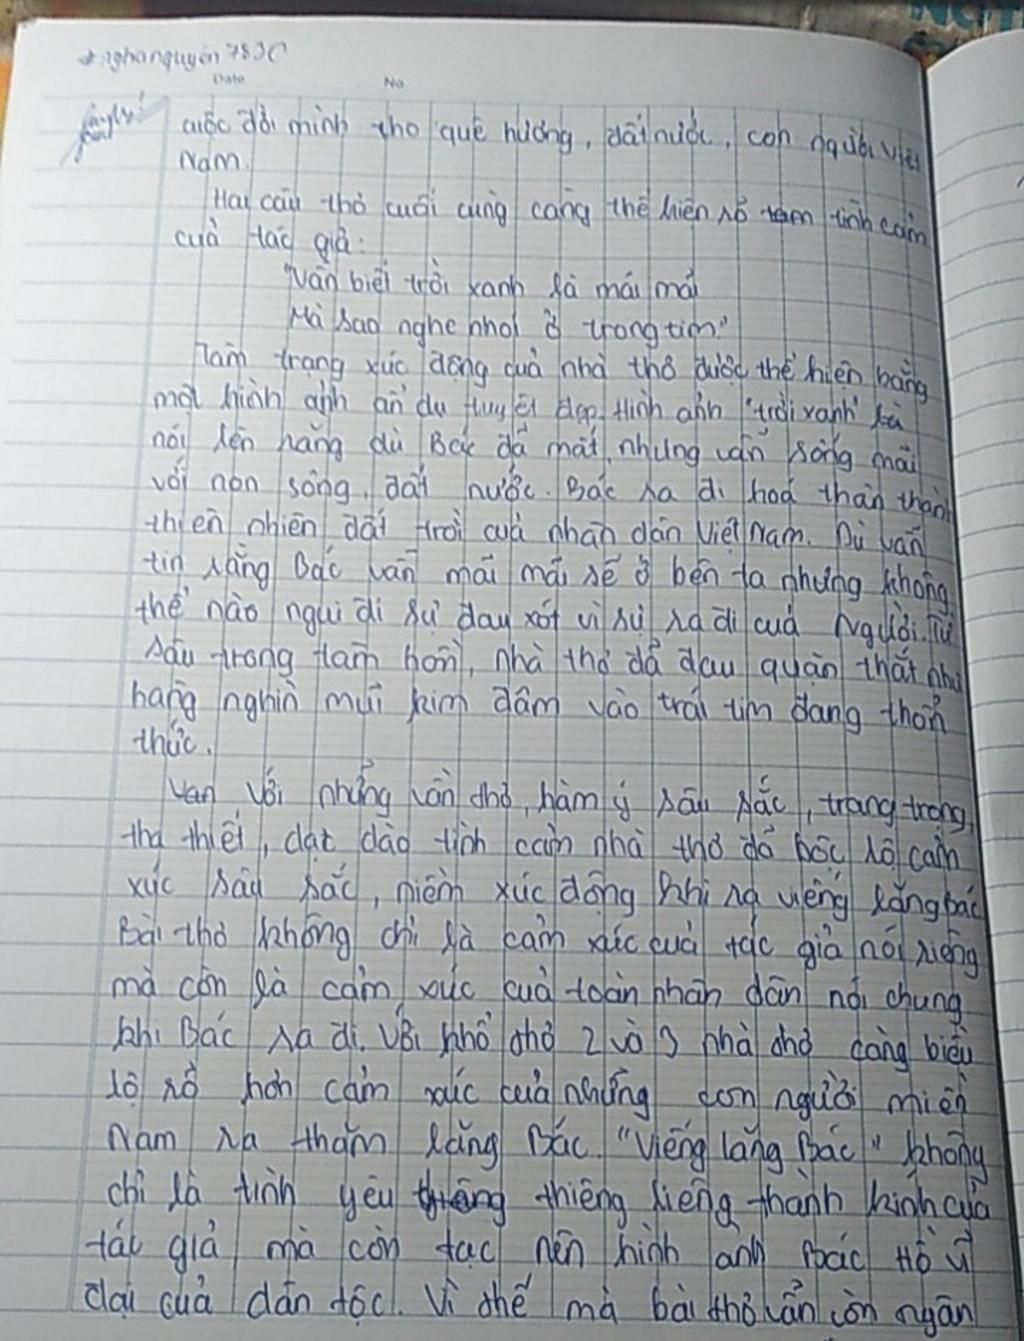 nghanguyen783C
Date No
cuộc đời mình cho quê hương, đất nước, con người Việt
Nam.
Hai câu thơ cuối cùng càng thể hiện rõ tâm tình cảm
của tác giả:
"Vẫn biết trời xanh là mãi mãi
Mà sao nghe nhói ở trong tim"
Tâm trạng xúc động của nhà thơ được thể hiện bằng
một hình ảnh ẩn dụ tuyệt đẹp. Hình ảnh "trời xanh"
nói lên rằng dù Bác đã mất, nhưng vẫn sống mãi
với non sông, đất nước. Bác ra đi hoá thân thành
thiên nhiên đất trời của nhân dân Việt Nam. Dù vẫn
tin rằng Bác vẫn mãi mãi sẽ ở bên ta nhưng không
thể nào ngui đi sự đau xót vì sự ra đi của Người. Từ
sâu trong tâm hồn, nhà thơ đã đau quặn thắt như
hàng nghìn mũi kim đâm vào trái tim đang thổn
thức.
Với những vần thơ, hàm ý sâu sắc, trang trọng,
tha thiết, dạt dào tình cảm nhà thơ đã bộc lộ cảm
xúc sâu sắc, niềm xúc động khi ra viếng lăng bác
Bài thơ không chỉ là cảm xúc của tác giả nói riêng
mà còn là cảm xúc của toàn nhân dân nói chung
khi Bác ra đi. Với khổ thơ 2 và 3 nhà thơ càng biểu
lộ rõ hơn cảm xúc của những con người miền
Nam ra thăm lăng Bác. "Viếng lăng Bác" không
chỉ là tình yêu thiêng liêng thành kính của
tác giả mà còn tạc nên hình ảnh Bác Hồ vĩ
đại của dân tộc. Vì thế mà bài thơ vẫn còn ngân